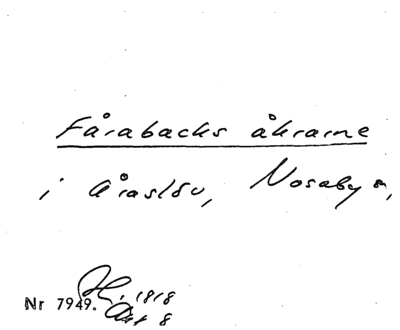 Fårabacks åkrarne
i Åraslöv, Nosaby s,
Hi, 1818
Nr 7949. Akt 8